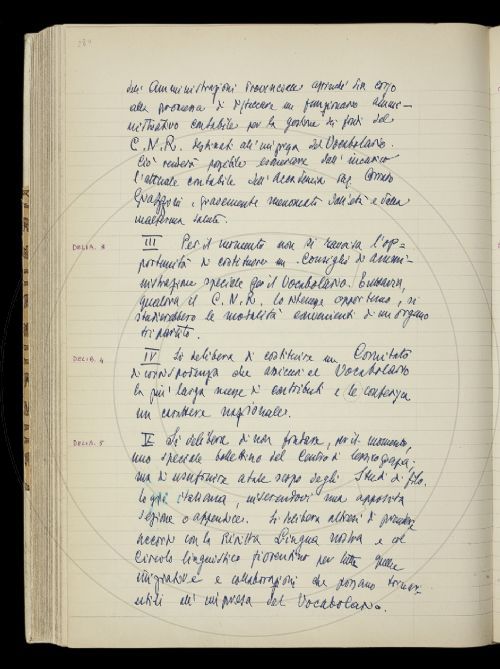 284
dell'Amministrazione Provinciale aprendo sin corso
alla promessa di distaccare un funzionario ammi-
nistrativo contabile per la gestione dei fondi del
C.N.R. destinati all'impresa del Vocabolario.
Ciò renderà possibile esonerare dall'incarico
l'attuale contabile dell'Accademia rag.
, gravemente menomato dall'età e dalla
malferma salute.
DELIB. 3
III Per il momento non si ravvisa l'op-
portunità di costituire un Consiglio di ammi-
nistrazione speciale per il Vocabolario.
qualora il C.N.R. lo ritenga opportuno, si
studierebbero le modalità convenienti di un organo
tripartito.
DELIB. 4
IV Si delibera di costituire un Comitato
di corrispondenza che assicuri al Vocabolario
la più larga messe di contributi e le conferisca
un carattere nazionale.
DELIB. 5
V Si delibera di non fondare, per il momento,
uno speciale bollettino del Centro di lessicografia;
ma di usufruire a tale scopo degli Studi di filo-
logia italiana, inserendovi una apposita
sezione o appendice. Si delibera altresì di prendere
accordi con la Rivista Lingua nostra e col
Circolo linguistico fiorentino per tutte quelle
iniziative e collaborazioni che possano tornare
utili all'impresa del Vocabolario.